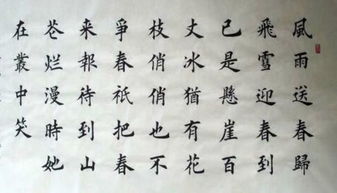 風雨送春歸
飛雪迎春到
已是懸崖百
丈冰猶有花
枝俏俏也不
爭春祇把春
来報待到山
烂漫時她
在叢中笑